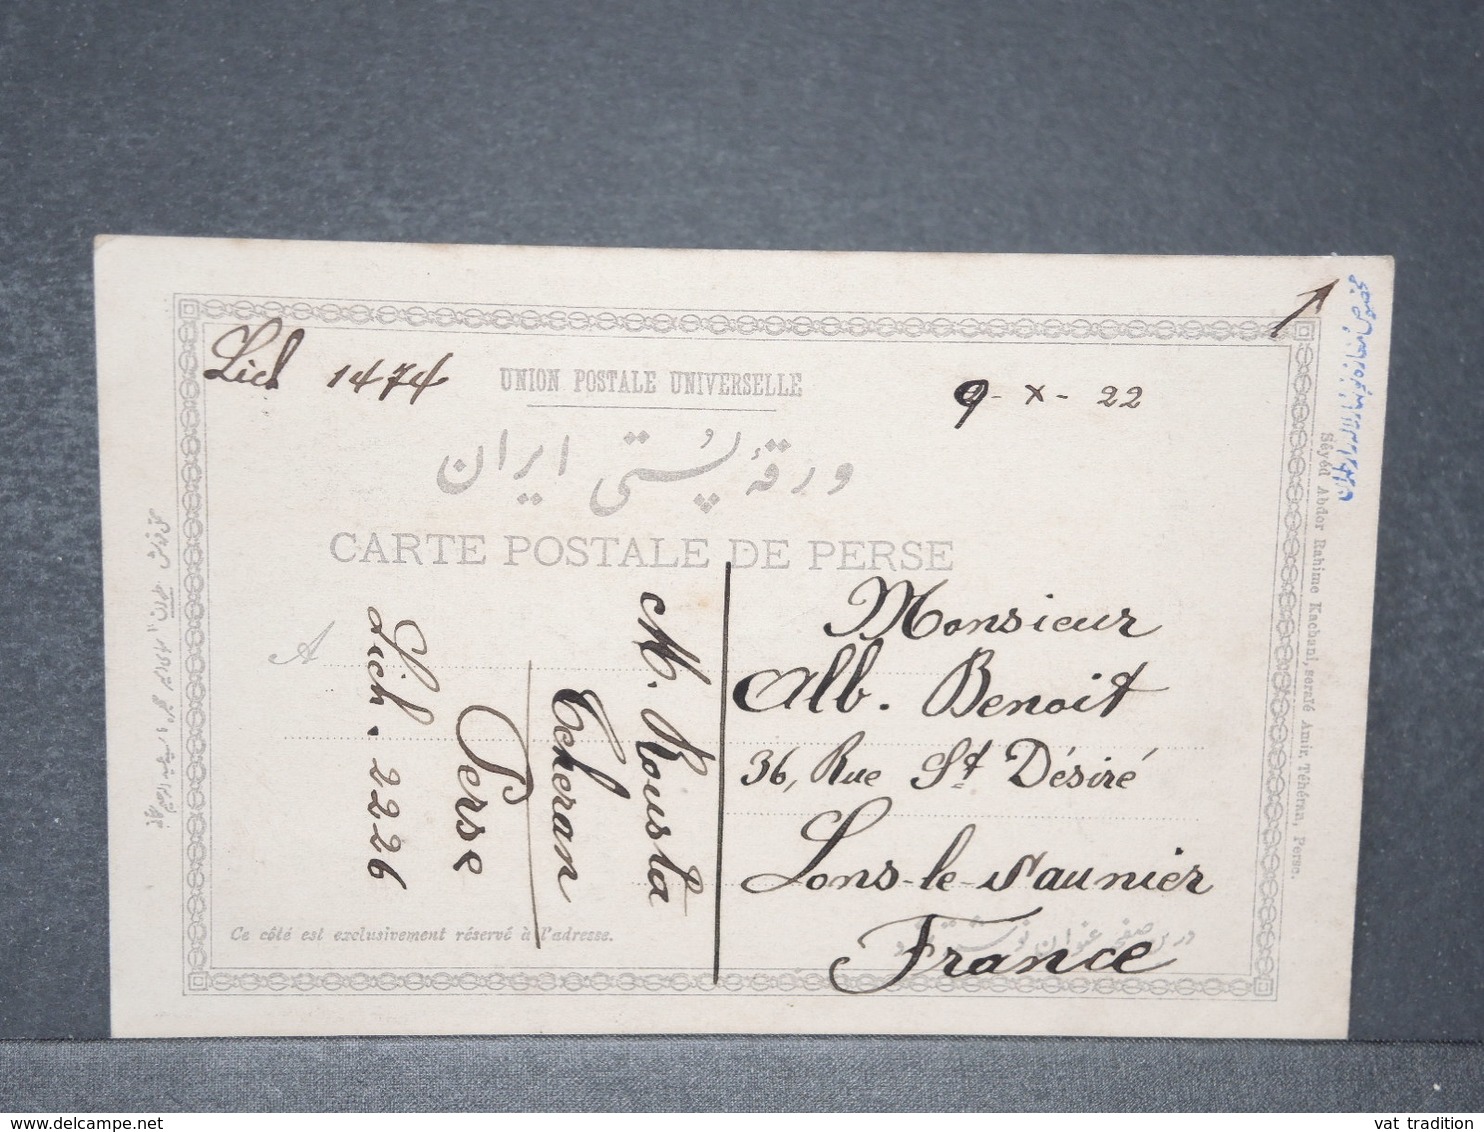 Lich 1474
UNION POSTALE UNIVERSELLE
9-X-22
ورقهٔ پُستی ایران
CARTE POSTALE DE PERSE
A
M. Rousta
Teheran
Perse
Lich. 2226
Monsieur
Alb. Benoit
36, Rue St Désiré
Lons-le-Saunier
France
Ce côté est exclusivement réservé à l'adresse.
Séyéd Abdor Rahime Kachani, seraïé Amir, Téhéran, Perse.
www.delcampe.net
vat tradition